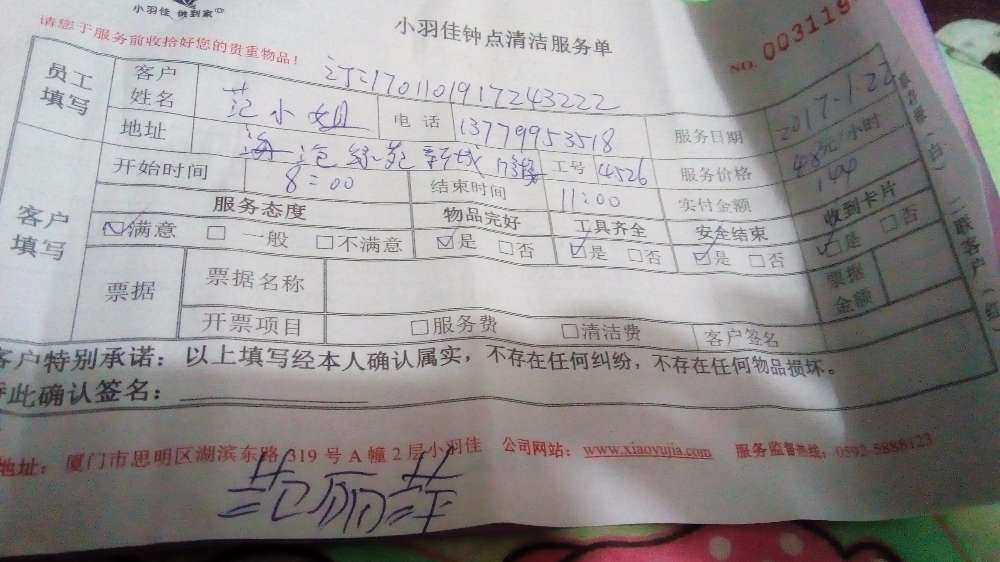 小羽佳 做到家
小羽佳钟点清洁服务单
请您于服务前收拾好您的贵重物品！
NO. 003119
订二1701101917243222
员工填写 客户姓名 范小姐 电话 13779953518 服务日期 2017-1.22
地址 海沧绿苑新城 工号 4526 服务价格 48元/小时
开始时间 8:00 结束时间 11:00 实付金额 144
客户填写 服务态度 物品完好 工具齐全 安全结束 收到卡片
☑满意 □一般 □不满意 ☑是 □否 ☑是 □否 ☑是 □否 ☑是 □否
票据 票据名称 票据金额
开票项目 □服务费 □清洁费 客户签名
客户特别承诺：以上填写经本人确认属实，不存在任何纠纷，不存在任何物品损坏。
此确认签名：
地址：厦门市思明区湖滨东路319号A幢2层小羽佳 公司网站：www.xiaoyujia.com 服务监督热线：0592-5888123
范丽萍